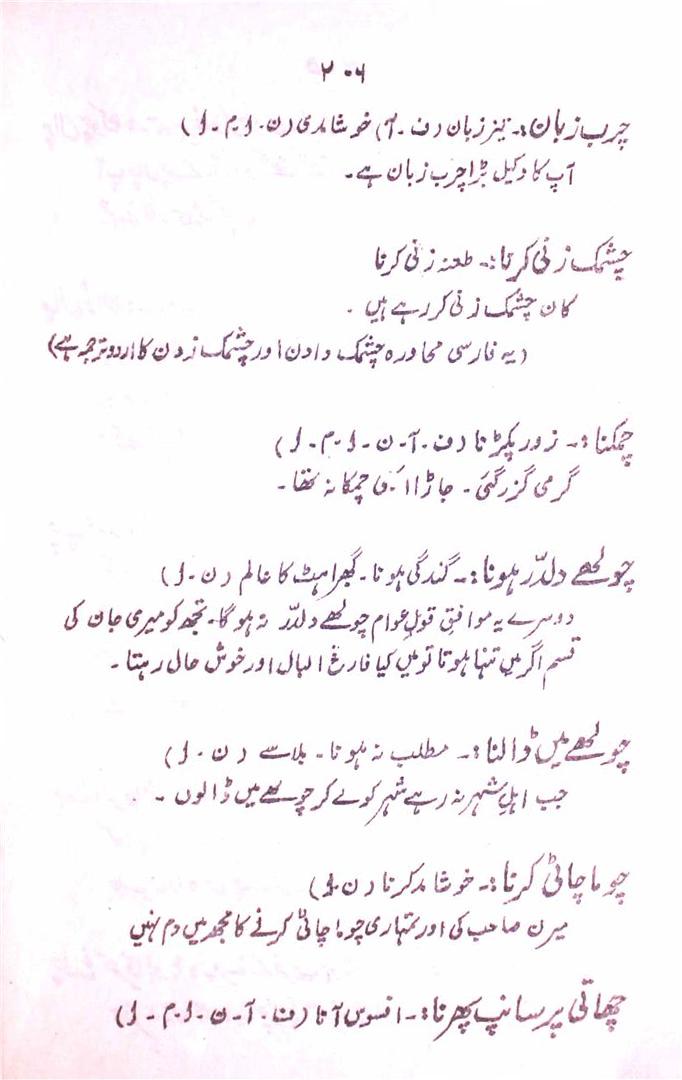 ۲۰۶
چرب زبان:۔ تیز زبان (ف۔آ) خوشامدی (ن۔ا۔م۔ل)
آپ کا وکیل بڑا چرب زبان ہے۔
چشمک زنی کرنا:۔ طعنہ زنی کرنا
کان چشمک زنی کر رہے ہیں۔
(یہ فارسی محاورہ چشمک دادن اور چشمک زدن کا اردو ترجمہ ہے)
چمکنا:۔ زور پکڑنا (ف۔آ۔ن۔ا۔م۔ل)
گرمی گزر گئی۔ جاڑا ابھی چمکا نہ تھا۔
چولھے دلدّر ہونا:۔ گندگی ہونا۔ گھبراہٹ کا عالم (ن۔ل)
دوسرے یہ موافقِ قولِ عوام چولھے دلدّر نہ ہوگا۔ تجھ کو میری جان کی
قسم اگر میں تنہا ہوتا تو میں کیا فارغ البال اور خوش حال رہتا۔
چولھے میں ڈالنا:۔ مطلب نہ ہونا۔ بلا سے (ن۔ل)
جب اہلِ شہر نہ رہے شہر کو لے کر چولھے میں ڈالوں۔
چوما چاٹی کرنا:۔ خوشامد کرنا (ن۔ل)
میرن صاحب کی اور تمہاری چوما چاٹی کرنے کا مجھ میں دم نہیں
چھاتی پر سانپ پھرنا:۔ افسوس آنا (ف۔آ۔ن۔ا۔م۔ل)